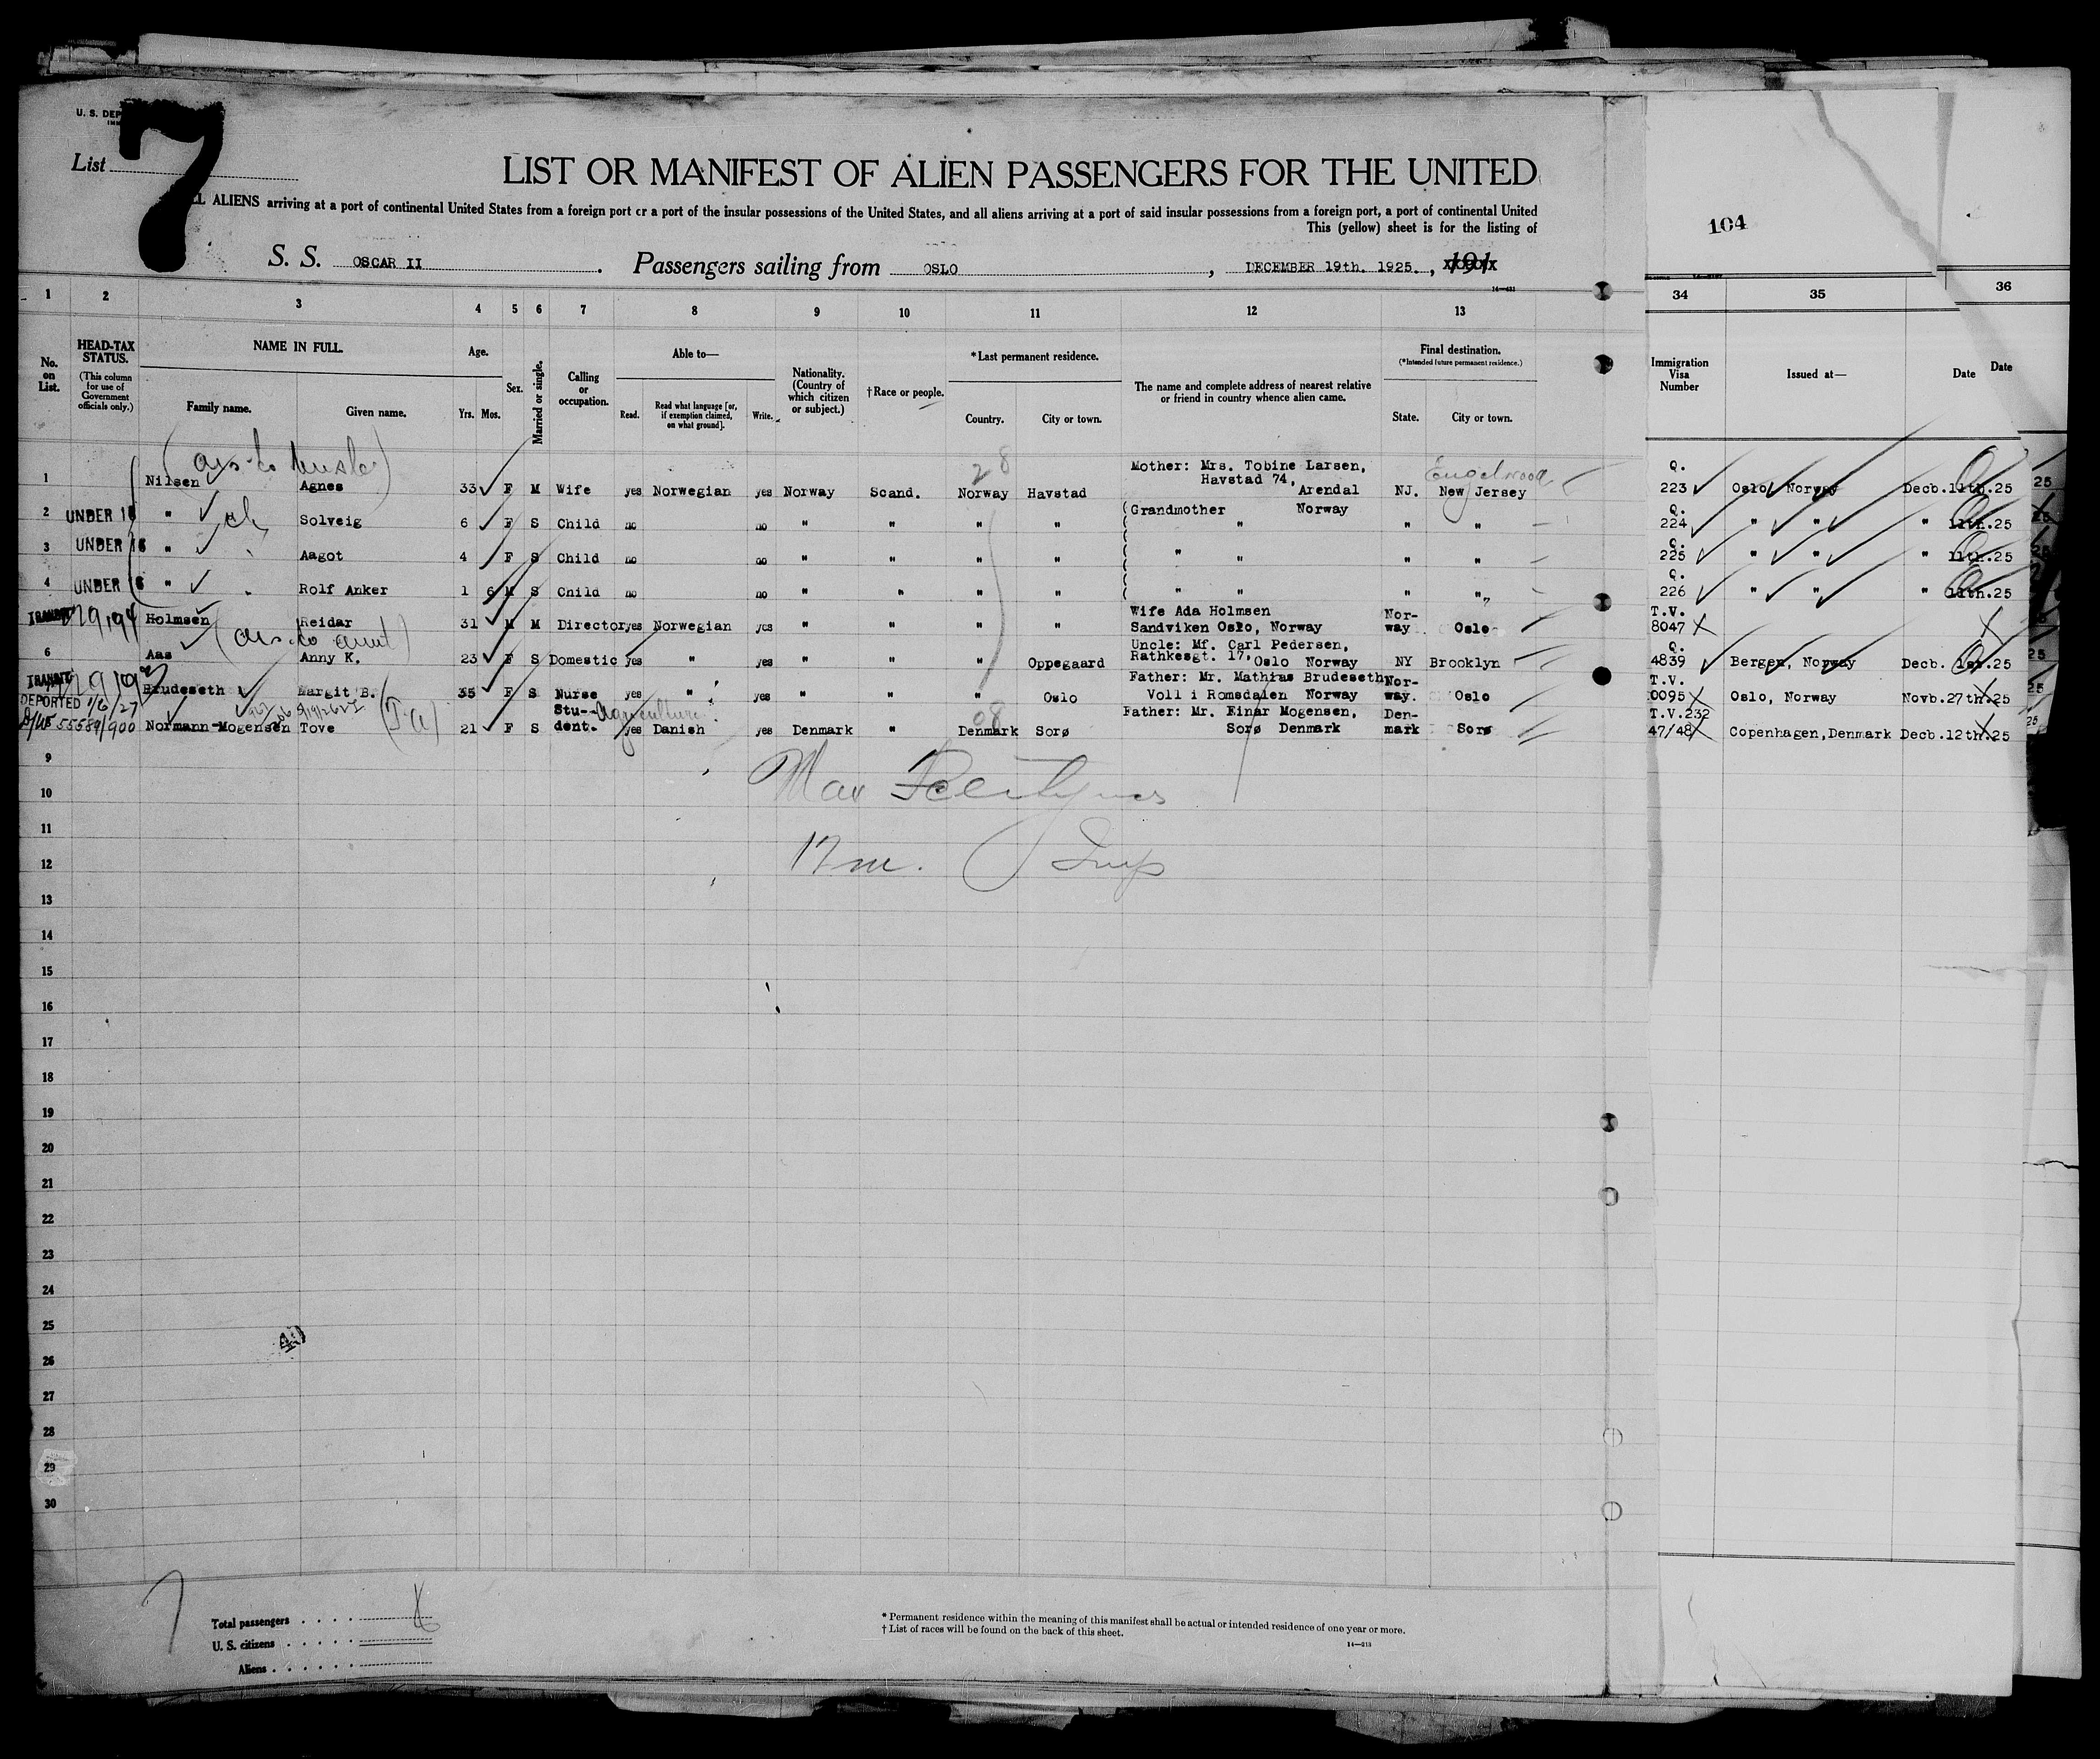 U. S. DEP
List 7
104
LIST OR MANIFEST OF ALIEN PASSENGERS FOR THE UNITED
LL ALIENS arriving at a port of continental United States from a foreign port or a port of the insular possessions of the United States, and all aliens arriving at a port of said insular possessions from a foreign port, a port of continental United
This (yellow) sheet is for the listing of
S. S. OSCAR II. Passengers sailing from OSLO, DECEMBER 19th. 1925., 191
14—431
1 2 3 4 5 6 7 8 9 10 11 12 13 34 35 36
No. on List.
HEAD-TAX STATUS. (This column for use of Government officials only.)
NAME IN FULL.
Family name. Given name.
Age.
Yrs. Mos.
Sex.
Married or single.
Calling or occupation.
Able to—
Read. Read what language [or, if exemption claimed, on what ground]. Write.
Nationality. (Country of which citizen or subject.)
†Race or people.
*Last permanent residence.
Country. City or town.
The name and complete address of nearest relative or friend in country whence alien came.
Final destination.
(*Intended future permanent residence.)
State. City or town.
Immigration Visa Number
Issued at—
Date
Date
1 Nilsen Agnes 33 F M Wife yes Norwegian yes Norway Scand. 28 Norway Havstad Mother: Mrs. Tobine Larsen, Havstad 74, Arendal NJ. Engelwood New Jersey Q. 223 Oslo, Norway Decb.11th.25
2 UNDER 16 " Solveig 6 F S Child no no " " " " (Grandmother " Norway " " Q. 224 " " " 11th.25
3 UNDER 16 " Aagot 4 F S Child no no " " " " " " " " Q. 225 " " " 11th.25
4 UNDER 16 " Rolf Anker 1 6 M S Child no no " " " " " " " " Q. 226 " " " 11th.25
TRANSIT Holmsen Reidar 31 M M Director yes Norwegian yes " " " " Wife Ada Holmsen Sandviken Oslo, Norway Nor-way Oslo T.V. 8047
6 Aas Anny K. 23 F S Domestic yes " yes " " " Oppegaard Uncle: Mr. Carl Pedersen, Rathkesgt. 17, Oslo Norway NY Brooklyn Q. 4839 Bergen, Norway Decb. 1st.25
TRANSIT Brudeseth Margit B. 35 F S Nurse yes " yes " " " Oslo Father: Mr. Mathias Brudeseth Voll i Romsdalen Norway Nor-way. Oslo T.V. 0095 Oslo, Norway Novb.27th.25
DEPORTED 1/6/27 Normann-Mogensen Tove 21 F S Stu-dent. Agriculture yes Danish yes Denmark " 08 Denmark Sorø Father: Mr. Einar Mogensen, Sorø Denmark Den-mark Sorø T.V.232 47/48 Copenhagen,Denmark Decb.12th.25
9
10
11
12
13
14
15
16
17
18
19
20
21
22
23
24
25
26
27
28
29
30
Total passengers . . . .
U. S. citizens . . . . .
Aliens . . . . . .
* Permanent residence within the meaning of this manifest shall be actual or intended residence of one year or more.
† List of races will be found on the back of this sheet.
14—213